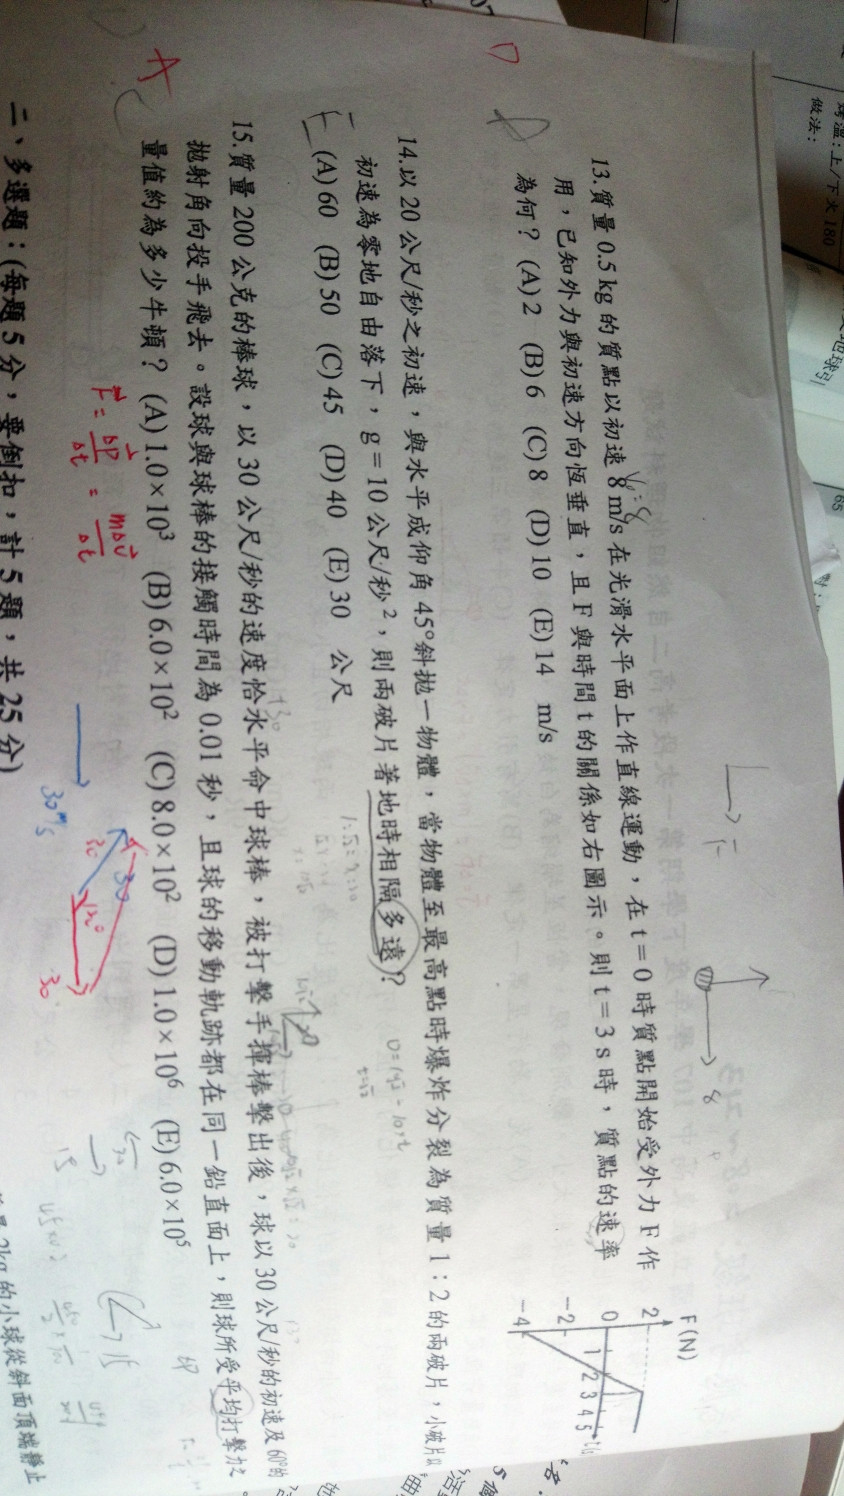 13.質量 0.5 kg 的質點以初速 8 m/s 在光滑水平面上作直線運動，在 t＝0 時質點開始受外力 F 作
用，已知外力與初速方向恆垂直，且 F 與時間 t 的關係如右圖示。則 t＝3 s 時，質點的速率
為何？ (A) 2 (B) 6 (C) 8 (D) 10 (E) 14 m/s
F(N)
2
0
-2
-4
1 2 3 4 5
D
8
14.以 20 公尺/秒之初速，與水平成仰角 45°斜拋一物體，當物體至最高點時爆炸分裂為質量 1：2 的兩破片，小破片以
初速為零地自由落下，g＝10 公尺/秒²，則兩破片著地時相隔多遠？
(A) 60 (B) 50 (C) 45 (D) 40 (E) 30 公尺
15.質量 200 公克的棒球，以 30 公尺/秒的速度恰水平命中球棒，被打擊手揮棒擊出後，球以 30 公尺/秒的初速及 60°的
拋射角向投手飛去。設球與球棒的接觸時間為 0.01 秒，且球的移動軌跡都在同一鉛直面上，則球所受平均打擊力之
量值約為多少牛頓？ (A) 1.0×10³ (B) 6.0×10² (C) 8.0×10² (D) 1.0×10⁶ (E) 6.0×10⁵
A
F = Δp/Δt = mΔv/Δt
30 m/s
30
120°
30
二、多選題：(每題 5 分，要倒扣，計 5 題，共 25 分)
2kg 的小球從斜面頂端靜止